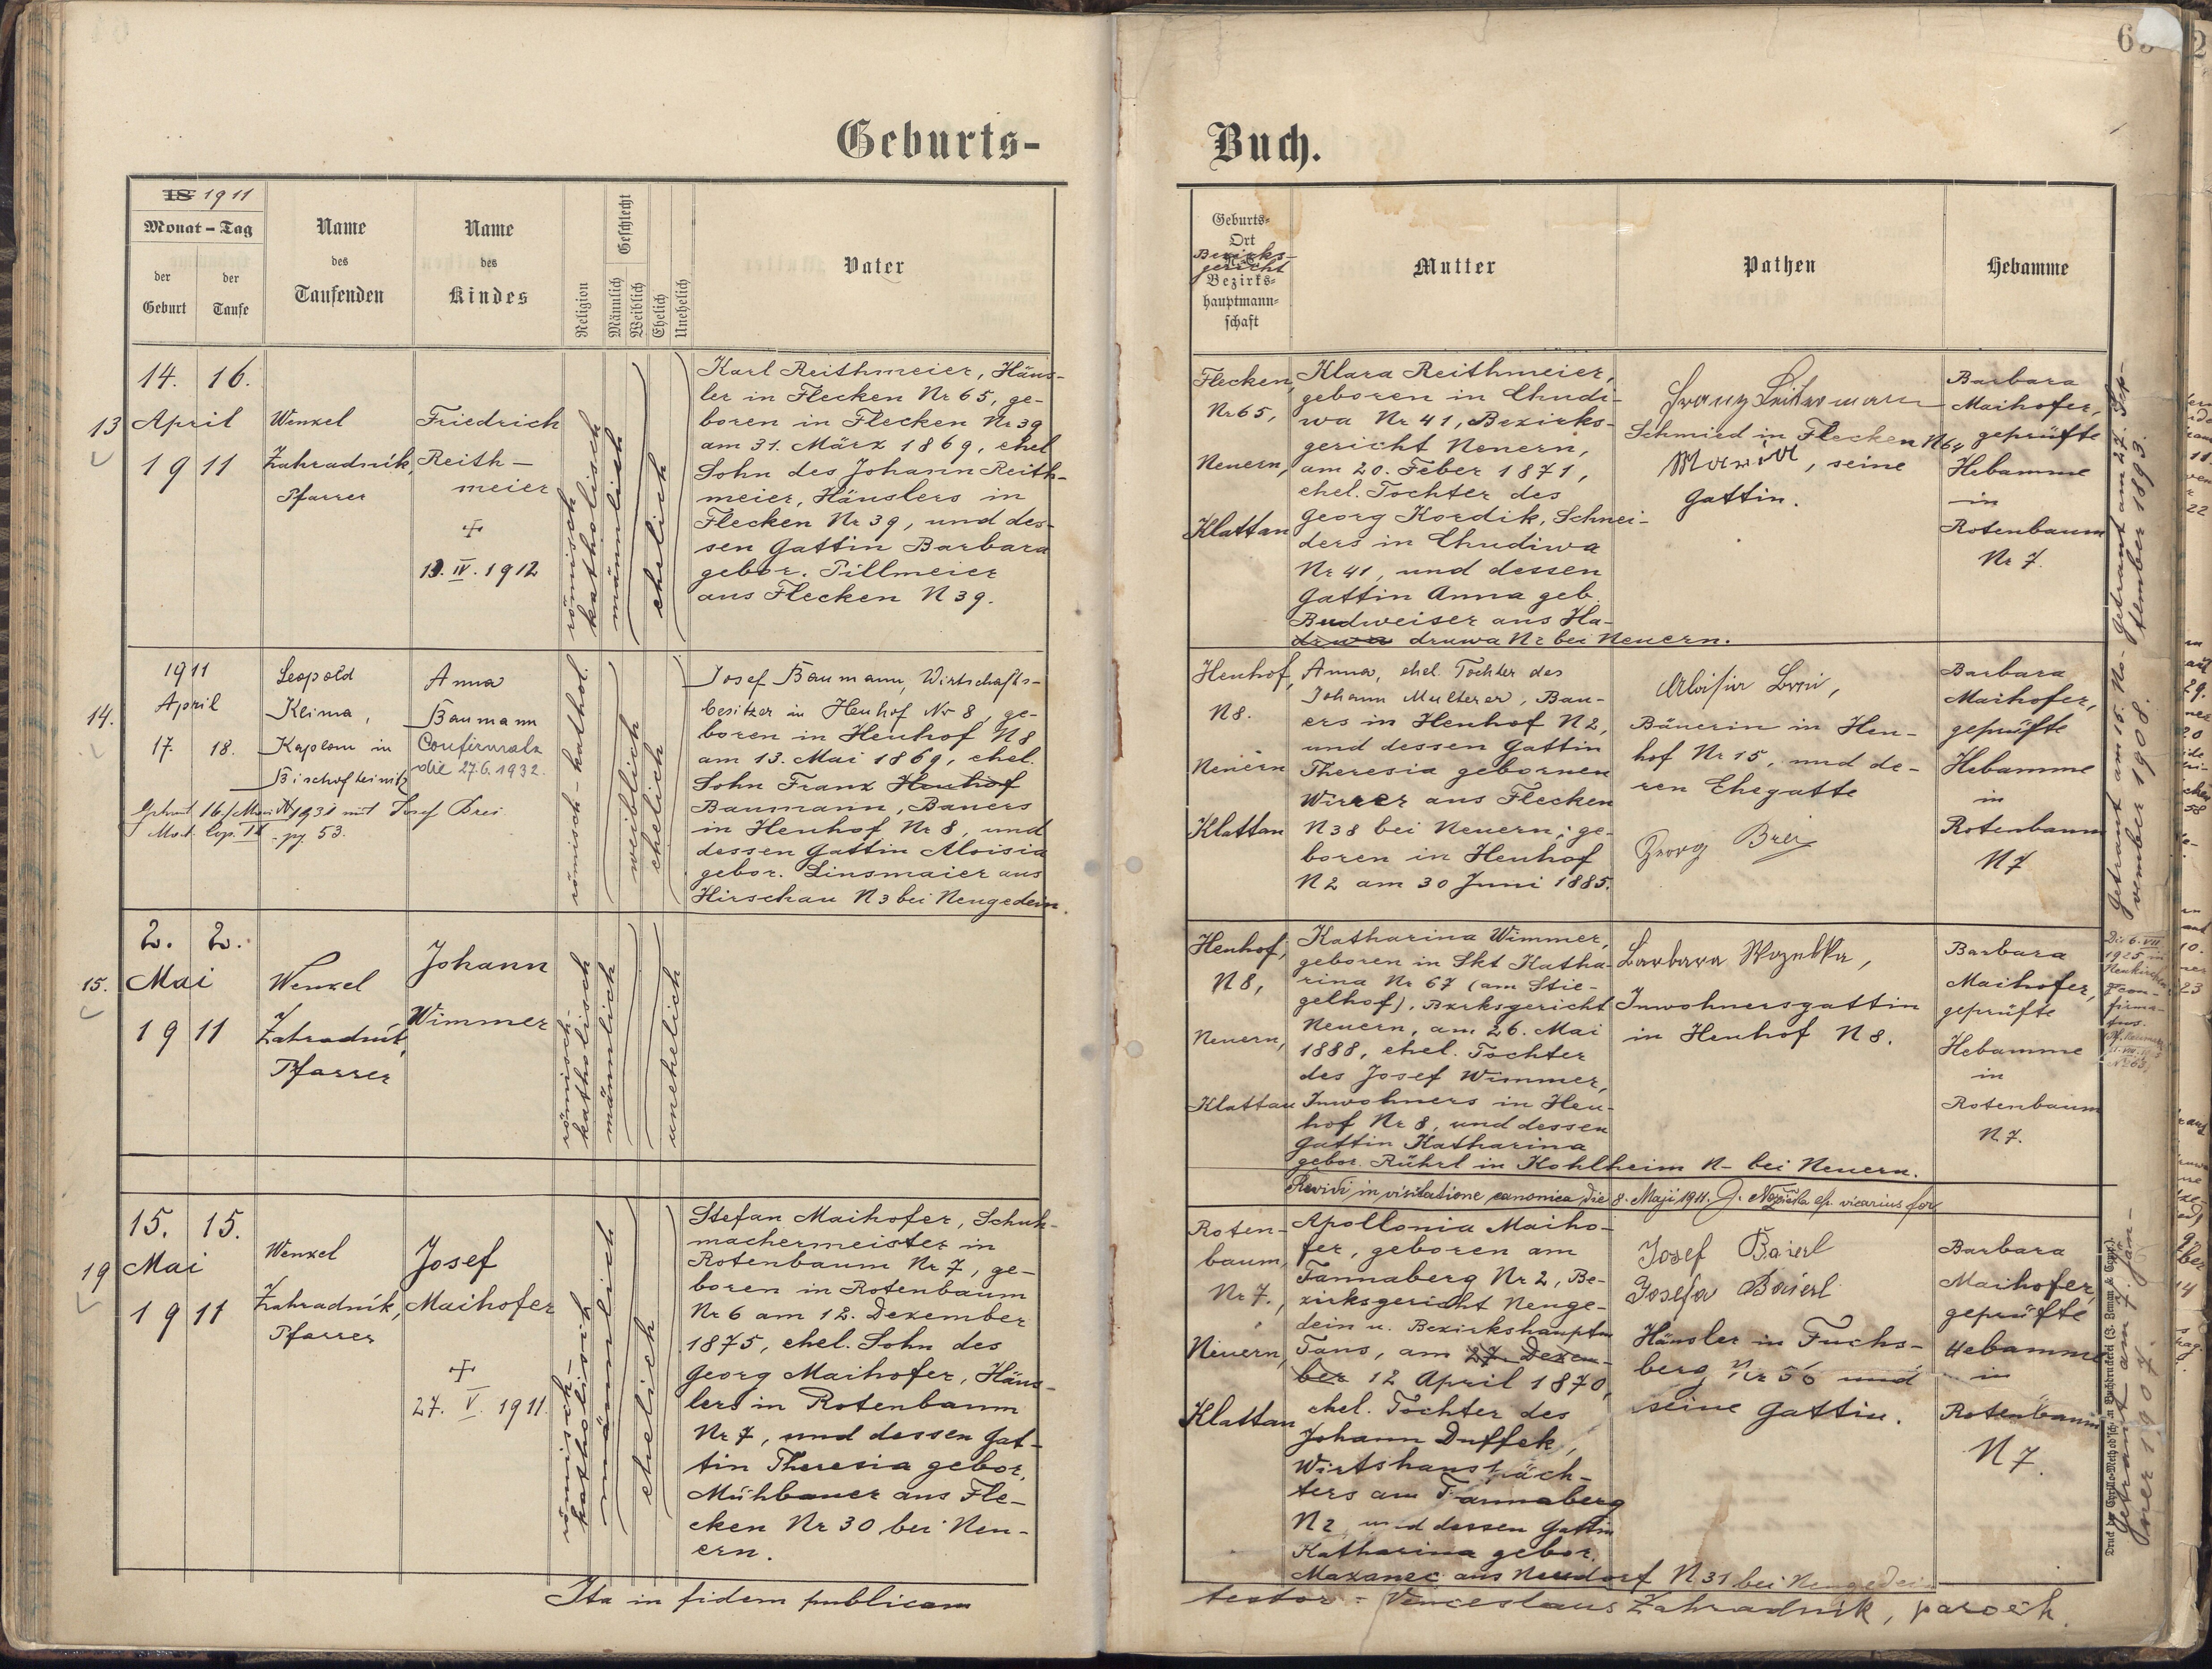 Geburts-
Buch.
18 1911
Monat - Tag
der Geburt
der Taufe
Name des Taufenden
Name des Kindes
Religion
Geschlecht
Männlich
Weiblich
Ehelich
Unehelich
Vater
Geburts-
Ort
Bezirks-
gericht
Bezirks-
hauptmann-
schaft
Mutter
Pathen
Hebamme
13
14. 16.
April
1911
Wenzel
Zahradnik,
Pfarrer
Friedrich
Reith-
meier
+
13. IV. 1912
römisch
katholisch
männlich
ehelich
Karl Reithmeier, Häus-
ler in Flecken Nr 65, ge-
boren in Flecken Nr 39
am 31. März 1869, ehel
Sohn des Johann Reith-
meier, Häuslers in
Flecken Nr 39, und des-
sen Gattin Barbara
gebor. Pillmeier
aus Flecken N 39.
Flecken,
Nr 65,
Neuern,
Klattau
Klara Reithmeier,
geboren in Chudi-
wa Nr 41, Bezirks-
gericht Neuern,
am 20. Feber 1871,
ehel. Tochter des
Georg Kordik, Schnei-
ders in Chudiwa
Nr 41, und dessen
Gattin Anna geb.
Budweiser aus Ha-
druwa druwa Nr bei Neuern.
Franz
Schmied in Flecken N 64
Maria, seine
Gattin.
Barbara
Maihofer,
geprüfte
Hebamme
in
Rotenbaum
Nr 7.
Getraut am 27. Sep-
tember 1893.
14.
1911
April
17. 18.
Leopold
Klima,
Kaplan in
Bischofteinitz
Anna
Baumann
Confirmata
die 27.6.1932.
Getraut 16/ 1931 mit Josef Brei
Mat. Cop. pg. 53.
römisch-kathol.
weiblich
ehelich
Josef Baumann, Wirtschafts-
besitzer in Heuhof Nr 8, ge-
boren in Heuhof N 8
am 13. Mai 1869, ehel.
Sohn Franz Heuhof
Baumann, Bauers
in Heuhof Nr 8, und
dessen Gattin Aloisia
gebor. Linsmaier aus
Hirschau N 3 bei Neugedein.
Heuhof,
N 8.
Neuern
Klattau
Anna, ehel. Tochter des
Johann Multerer, Bau-
ers in Heuhof N 2,
und dessen Gattin
Theresia gebornen
Wirrer aus Flecken
N 38 bei Neuern; ge-
boren in Heuhof
N 2 am 30 Juni 1885.
Aloisia Brei,
Bäuerin in Heu-
hof Nr 15, und de-
ren Ehegatte
Georg Brei
Barbara
Maihofer,
geprüfte
Hebamme
in
Rotenbaum
N 7
Getraut am 16. No-
vember 1908.
15.
2. 2.
Mai
1911
Wenzel
Zahradnik,
Pfarrer
Johann
Wimmer
römisch-
katholisch
männlich
unehelich
Heuhof,
N 8,
Neuern,
Klattau
Katharina Wimmer,
geboren in Skt Katha-
rina Nr 67 (am Stie-
gelhof), Bzrksgericht
Neuern, am 26. Mai
1888, ehel. Tochter
des Josef Wimmer,
Inwohners in Heu-
hof Nr 8, und dessen
Gattin Katharina
gebor. Rührl in Kohlheim N- bei Neuern.
Barbara
Inwohnersgattin
in Heuhof N 8.
Barbara
Maihofer,
geprüfte
Hebamme
in
Rotenbaum
N 7.
Die 6. VII.
1925 in
Neukirchen
con-
firma-
tus.
Revidi in visitatione canonica die 8. Maji 1911. vicarius for
19
15. 15.
Mai
1911
Wenzel
Zahradnik,
Pfarrer
Josef
Maihofer
+
27. V. 1911.
römisch-
katholisch
männlich
ehelich
Stefan Maihofer, Schuh-
machermeister in
Rotenbaum Nr 7, ge-
boren in Rotenbaum
Nr 6 am 12. Dezember
1875, ehel. Sohn des
Georg Maihofer, Häus-
lers in Rotenbaum
Nr 7, und dessen Gat-
tin Theresia gebor.
Mühbauer aus Fle-
cken Nr 30 bei Neu-
ern.
Roten-
baum,
Nr 7.,
Neuern,
Klattau
Apollonia Maiho-
fer, geboren am
Tannaberg Nr 2, Be-
zirksgericht Neuge-
dein u. Bezirkshauptm
Taus, am 27. Dezem-
ber 12 April 1870,
ehel. Tochter des
Johann Duffek,
Wirtshauspäch-
ters am Tannaberg
N 2 und dessen Gattin
Katharina gebor.
Maxanec aus Neudorf N. 31 bei Neugedein
Josef Baierl
Josefa Baierl
Häusler in Fuchs-
berg Nr 56 und
seine Gattin.
Barbara
Maihofer,
geprüfte
Hebamme
in
Rotenbaum
N 7.
Getraut am 7. Jän-
ner 1907.
Ita in fidem publicam
testor: Venceslaus Zahradník, paroch.